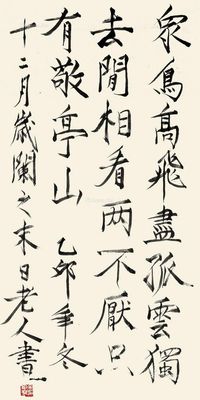 眾鳥高飛盡孤雲獨
去閒相看两不厭只
有敬亭山 乙卯年冬
十二月歲闌之末日老人書